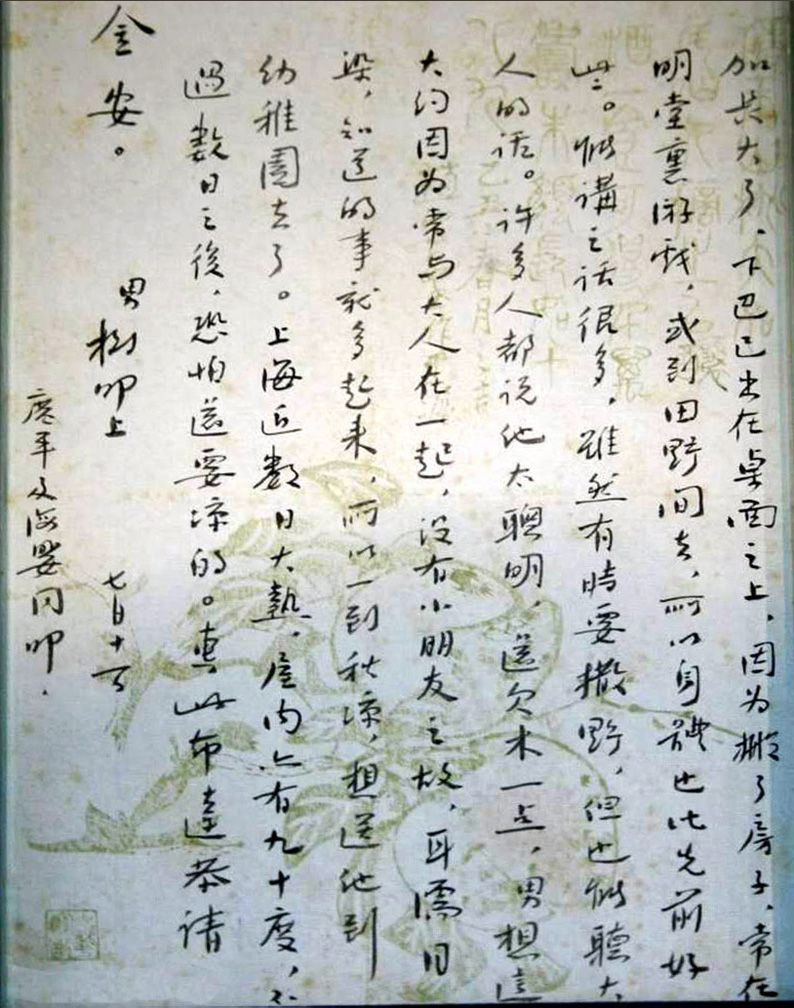 加長大了、下巴已出在桌面之上，因为搬了房子，常在
明堂裏游戲，或到田野間去，所以身體也比先前好
些。能講之话很多，雖然有時要撒野，但也能聽大
人的话。许多人都说他太聰明，還欠木一点，男想這
大约因为常与大人在一起，沒有小朋友之故，耳濡目
染，知道的事就多起来，所以一到秋凉，想送他到
幼稚園去了。上海近數日大熱，屋内亦有九十度，不
過數日之後，恐怕還要凉的。専此布達恭請
金安。
男樹叩上 七月十一日
廣平及海嬰同叩．